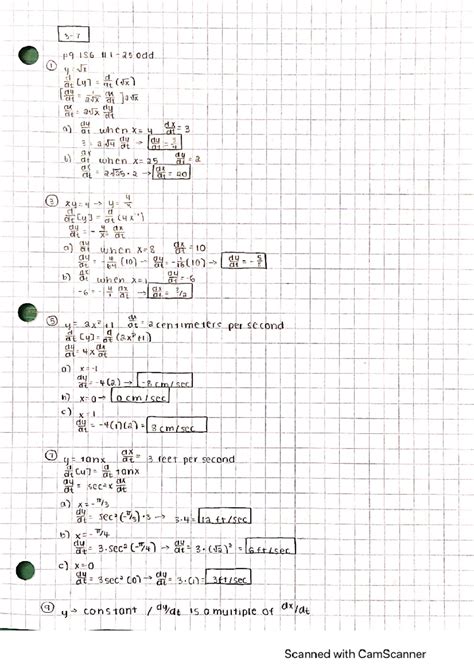 3-7
pg 156 # 1-25 odd
① y = √x
d/dt [y] = d/dt (√x)
[dy/dt = 1/2√x dx/dt] 2√x
dx/dt = 2√x dy/dt
a) dy/dt when x = 4 dx/dt = 3
3 = 2√4 dy/dt → dy/dt = 3/4
b) dx/dt when x = 25 dy/dt = 2
dx/dt = 2√25 · 2 → dx/dt = 20
③ xy = 4 → y = 4/x
d/dt [y] = d/dt (4x⁻¹)
dy/dt = - 4/x² dx/dt
a) dy/dt when x = 8 dx/dt = 10
dy/dt = - 4/64 (10) → dy/dt = - 1/16 (10) → dy/dt = - 5/8
b) dx/dt when x = 1 dy/dt = -6
-6 = - 4/1 dx/dt → dx/dt = 3/2
⑤ y = 2x² + 1 dx/dt = 2 centimeters per second
d/dt [y] = d/dt (2x² + 1)
dy/dt = 4x dx/dt
a) x = -1
dy/dt = -4(2) → -8 cm/sec
b) x = 0 → 0 cm/sec
c) x = 1
dy/dt = -4(1)(2) = 8 cm/sec
⑦ y = tanx dx/dt = 3 feet per second
d/dt [y] = d/dt tanx
dy/dt = sec²x dx/dt
a) x = -π/3
dy/dt = sec²(-π/3) · 3 → 3·4 = 12 ft/sec
b) x = -π/4
dy/dt = 3·sec²(-π/4) → dy/dt = 3·(√2)² = 6 ft/sec
c) x = 0
dy/dt = 3sec²(0) → dy/dt = 3·(1) = 3 ft/sec
⑨ y → constant / dy/dt is a multiple of dx/dt
Scanned with CamScanner